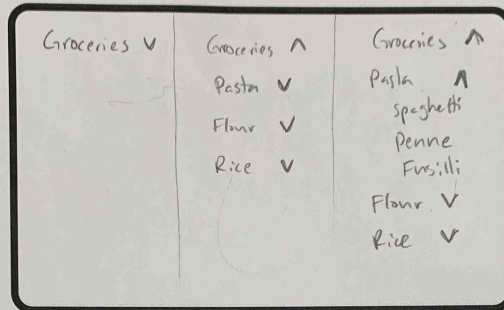 Groceries V
Groceries ʌ
Pasta V
Flour V
Rice V
Groceries ʌ
Pasta ʌ
Spaghetti
Penne
Fusilli
Flour V
Rice V